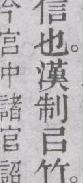 信也。漢制㠯竹
今官中諸官詔